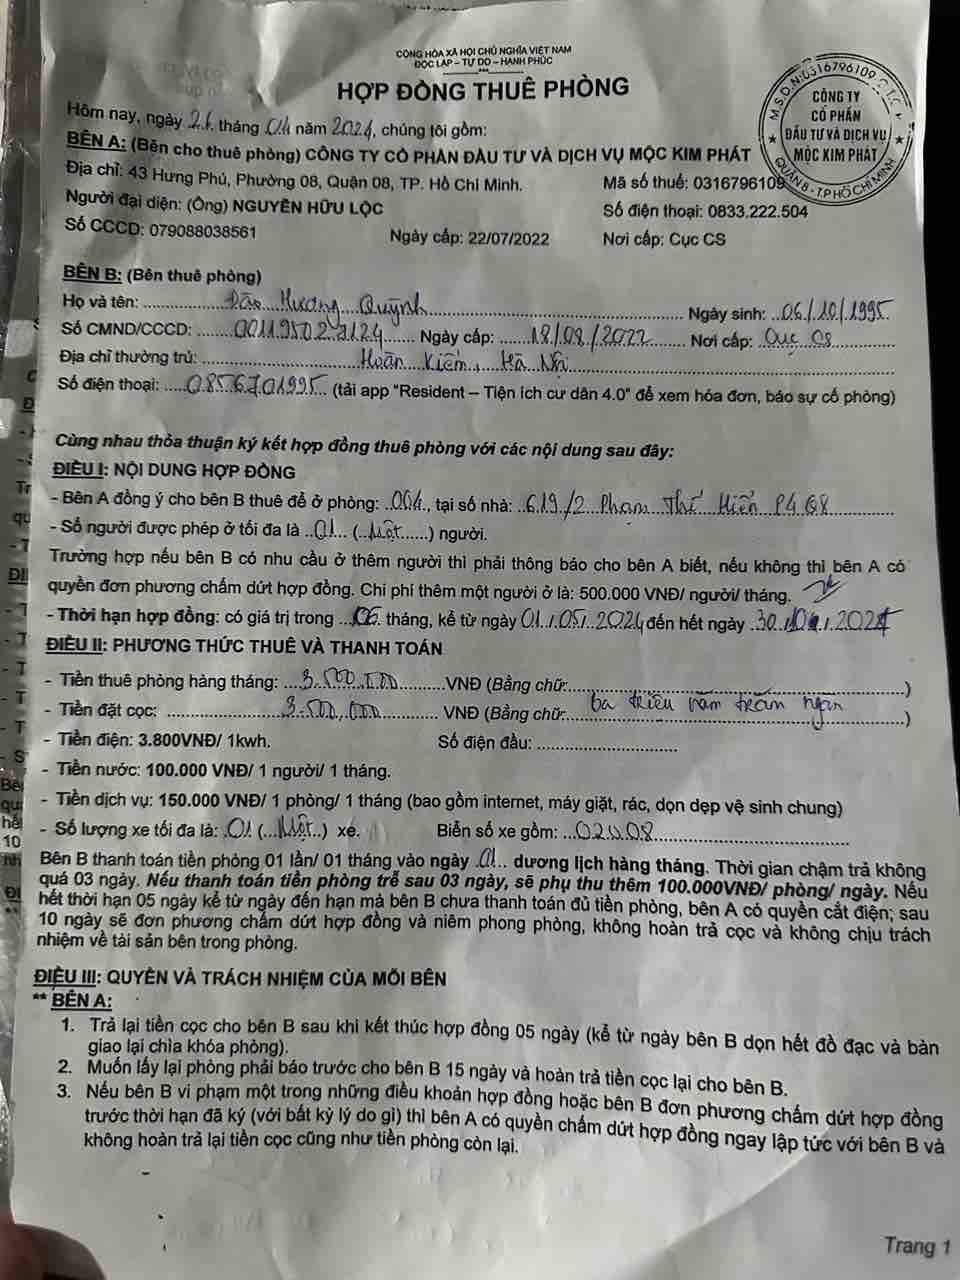 CỘNG HÒA XÃ HỘI CHỦ NGHĨA VIỆT NAM
ĐỘC LẬP – TỰ DO – HẠNH PHÚC
***
HỢP ĐỒNG THUÊ PHÒNG
M.S.D.N:0316796109 C.T.C.P
CÔNG TY
CỔ PHẦN
ĐẦU TƯ VÀ DỊCH VỤ
MỘC KIM PHÁT
QUẬN 8 - T.P HỒ CHÍ MINH
Hôm nay, ngày tháng 04 năm 2024, chúng tôi gồm:
BÊN A: (Bên cho thuê phòng) CÔNG TY CỔ PHẦN ĐẦU TƯ VÀ DỊCH VỤ MỘC KIM PHÁT
Địa chỉ: 43 Hưng Phú, Phường 08, Quận 08, TP. Hồ Chí Minh. Mã số thuế: 0316796109
Người đại diện: (Ông) NGUYỄN HỮU LỘC Số điện thoại: 0833.222.504
Số CCCD: 079088038561 Ngày cấp: 22/07/2022 Nơi cấp: Cục CS
BÊN B: (Bên thuê phòng)
Họ và tên: Đào Hương Quỳnh Ngày sinh: 06/10/1995
Số CMND/CCCD: Ngày cấp: 18/08/2022 Nơi cấp: Cục CS
Địa chỉ thường trú: Hoàn Kiếm, Hà Nội
Số điện thoại: 0856701995 (tải app "Resident – Tiện ích cư dân 4.0" để xem hóa đơn, báo sự cố phòng)
Cùng nhau thỏa thuận ký kết hợp đồng thuê phòng với các nội dung sau đây:
ĐIỀU I: NỘI DUNG HỢP ĐỒNG
- Bên A đồng ý cho bên B thuê để ở phòng: 004, tại số nhà: 619/2 Phạm Thế Hiển P4 Q8
- Số người được phép ở tối đa là 01 (Một) người.
Trường hợp nếu bên B có nhu cầu ở thêm người thì phải thông báo cho bên A biết, nếu không thì bên A có
quyền đơn phương chấm dứt hợp đồng. Chi phí thêm một người ở là: 500.000 VNĐ/ người/ tháng.
- Thời hạn hợp đồng: có giá trị trong tháng, kể từ ngày 01/05/2024 đến hết ngày 30/
ĐIỀU II: PHƯƠNG THỨC THUÊ VÀ THANH TOÁN
- Tiền thuê phòng hàng tháng: 3.500.000 VNĐ (Bằng chữ: )
- Tiền đặt cọc: 3.500.000 VNĐ (Bằng chữ: ba triệu năm trăm ngàn )
- Tiền điện: 3.800VNĐ/ 1kwh. Số điện đầu:
- Tiền nước: 100.000 VNĐ/ 1 người/ 1 tháng.
- Tiền dịch vụ: 150.000 VNĐ/ 1 phòng/ 1 tháng (bao gồm internet, máy giặt, rác, dọn dẹp vệ sinh chung)
- Số lượng xe tối đa là: 01 (Một) xe. Biển số xe gồm:
Bên B thanh toán tiền phòng 01 lần/ 01 tháng vào ngày 01 dương lịch hàng tháng. Thời gian chậm trả không
quá 03 ngày. Nếu thanh toán tiền phòng trễ sau 03 ngày, sẽ phụ thu thêm 100.000VNĐ/ phòng/ ngày. Nếu
hết thời hạn 05 ngày kể từ ngày đến hạn mà bên B chưa thanh toán đủ tiền phòng, bên A có quyền cắt điện; sau
10 ngày sẽ đơn phương chấm dứt hợp đồng và niêm phong phòng, không hoàn trả cọc và không chịu trách
nhiệm về tài sản bên trong phòng.
ĐIỀU III: QUYỀN VÀ TRÁCH NHIỆM CỦA MỖI BÊN
** BÊN A:
1. Trả lại tiền cọc cho bên B sau khi kết thúc hợp đồng 05 ngày (kể từ ngày bên B dọn hết đồ đạc và bàn
giao lại chìa khóa phòng).
2. Muốn lấy lại phòng phải báo trước cho bên B 15 ngày và hoàn trả tiền cọc lại cho bên B.
3. Nếu bên B vi phạm một trong những điều khoản hợp đồng hoặc bên B đơn phương chấm dứt hợp đồng
trước thời hạn đã ký (với bất kỳ lý do gì) thì bên A có quyền chấm dứt hợp đồng ngay lập tức với bên B và
không hoàn trả lại tiền cọc cũng như tiền phòng còn lại.
Trang 1